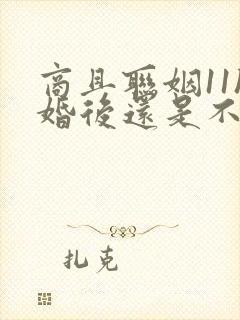 商且聯姻11
婚後還是不
扎克